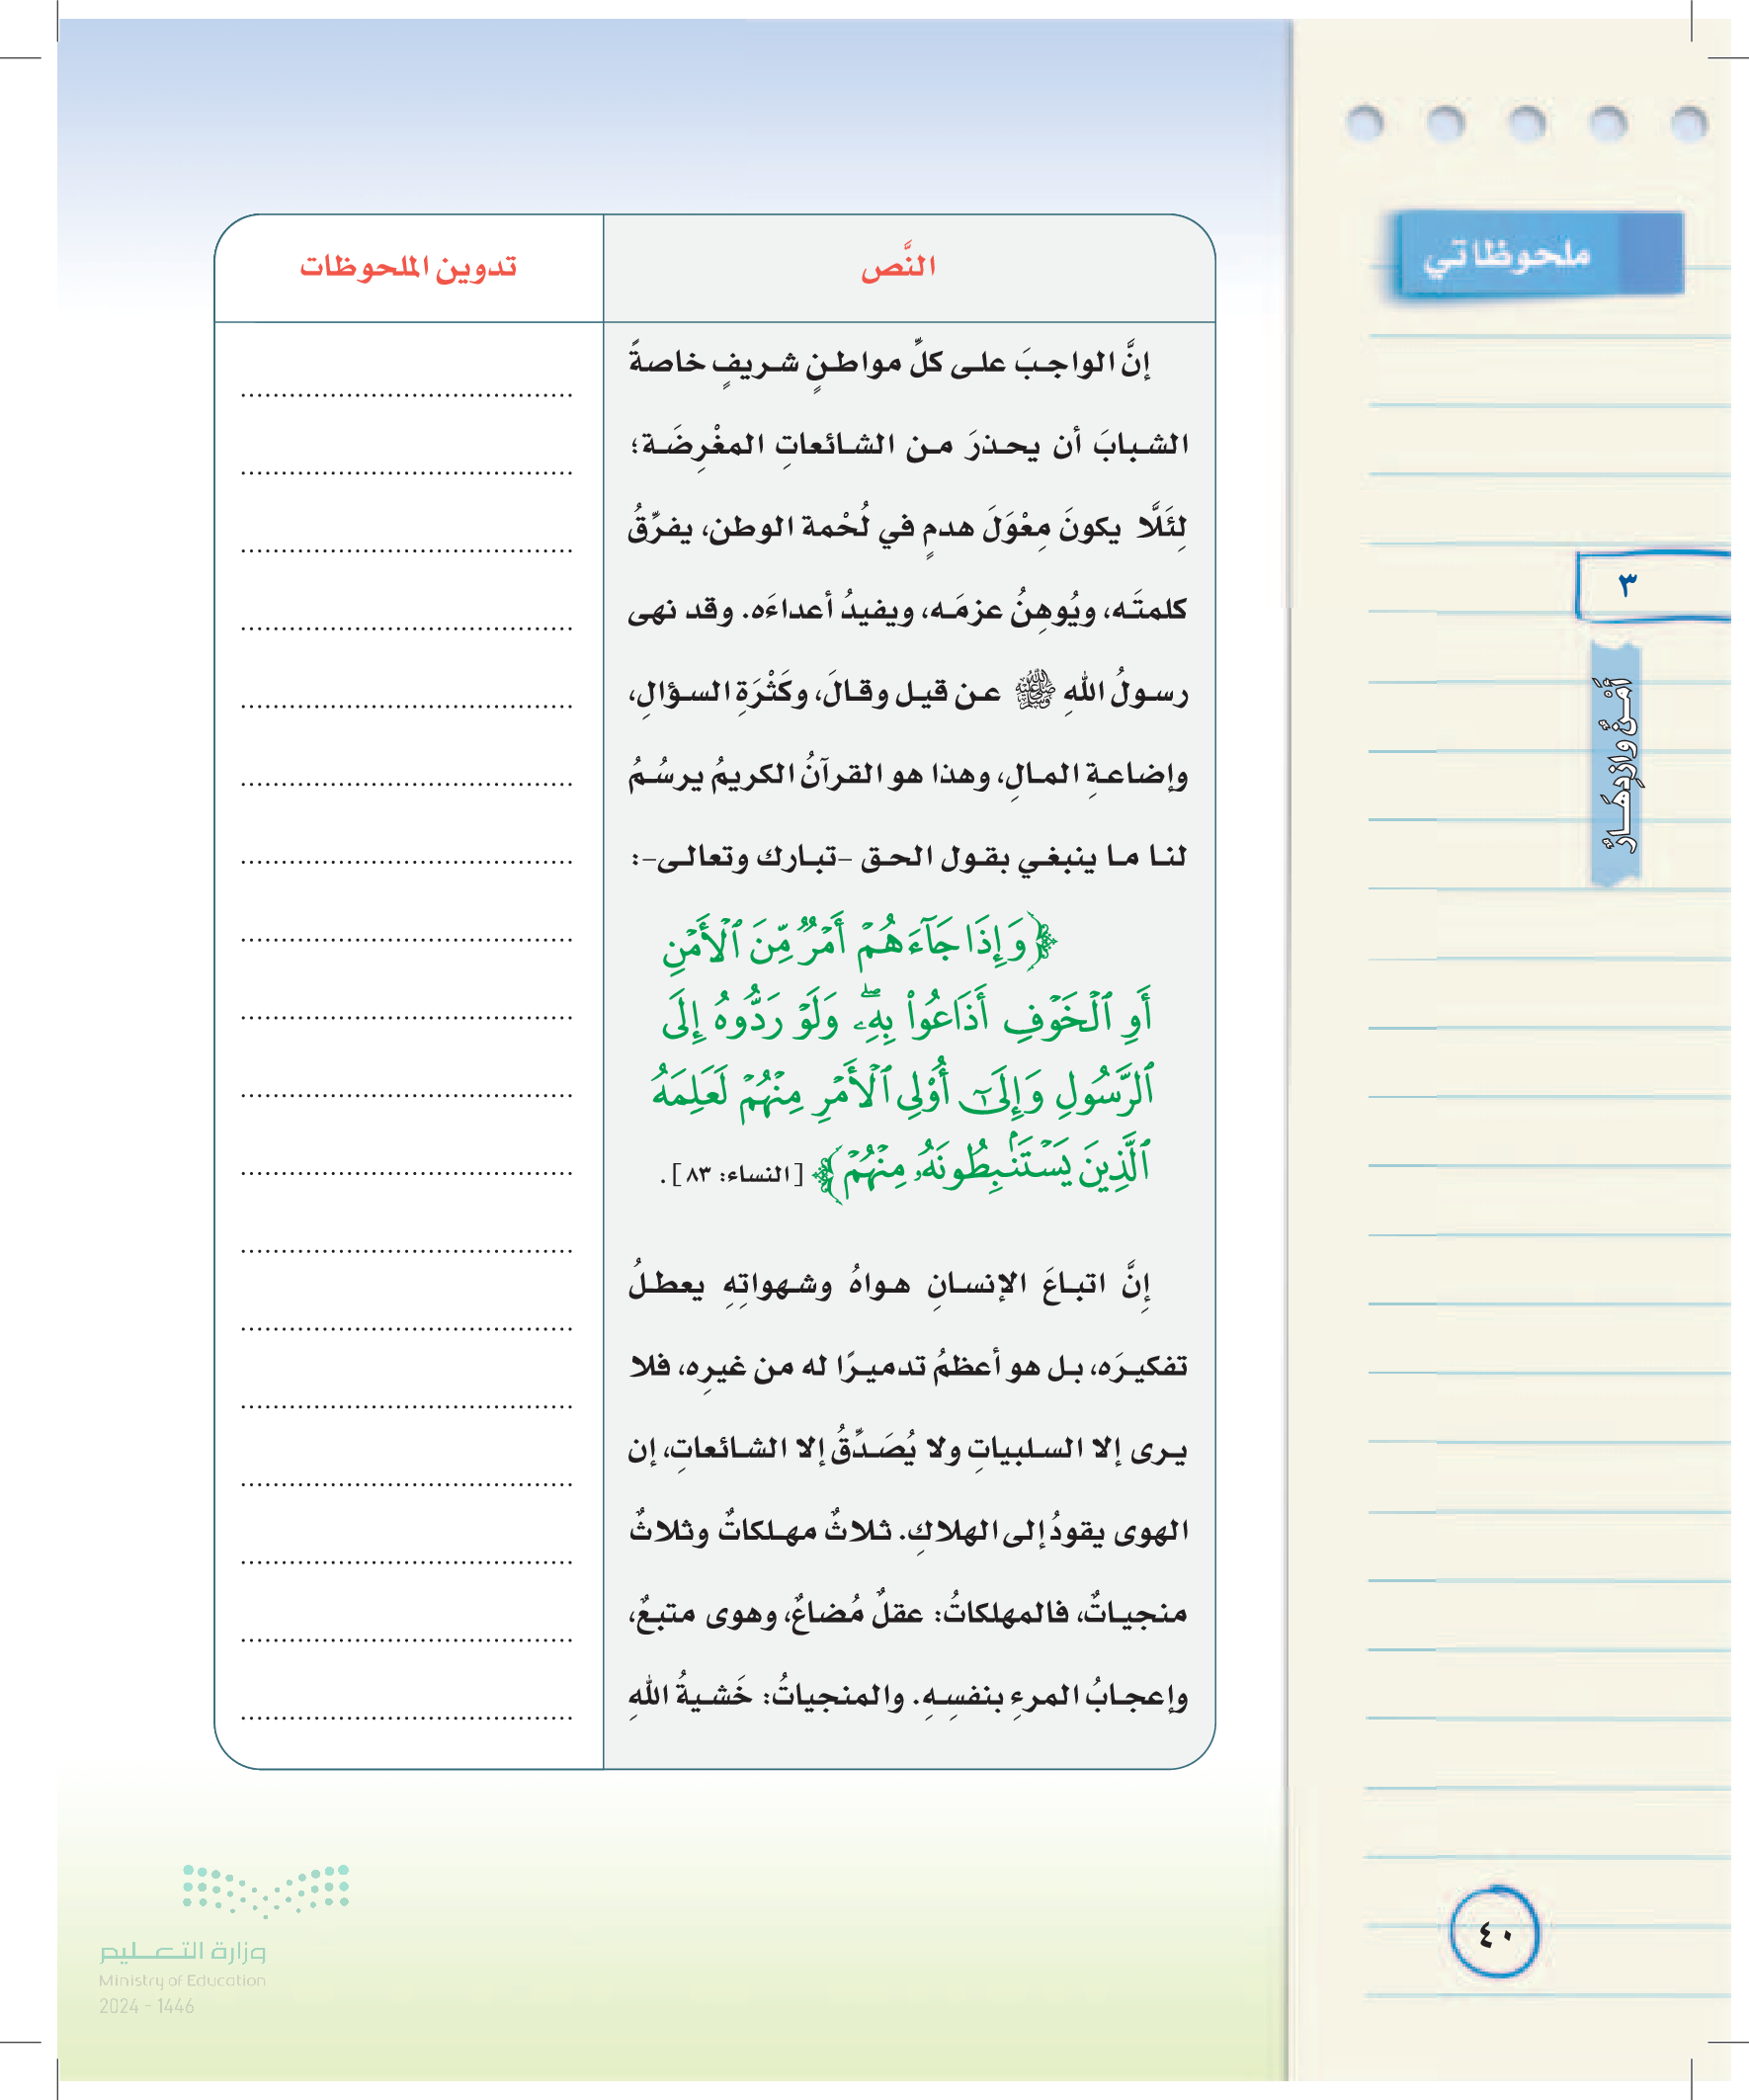 ملحوظاتي
٣
أَمْـنٌ وازْدِهَــارٌ
النَّص
تدوين الملحوظات
إنَّ الواجـبَ علـى كلِّ مواطـنٍ شـريفٍ خاصـةً
الشـبابَ أن يحـذرَ مـن الشـائعاتِ المغْرِضَـة؛
لِئَلَّا يكونَ مِعْوَلَ هدمٍ في لُحْمة الوطن، يفرِّقُ
كلمتَـه، ويُوهِنُ عزمَـه، ويفيدُ أعداءَه. وقد نهى
رسـولُ اللهِ ﷺ عـن قيـل وقـالَ، وكَثْرَةِ السـؤالِ،
وإضاعـةِ المـالِ، وهذا هو القرآنُ الكريمُ يرسُـمُ
لنـا مـا ينبغـي بقـول الحـق -تبـارك وتعالـى-:
﴿وَإِذَا جَآءَهُمۡ أَمۡرٞ مِّنَ ٱلۡأَمۡنِ
أَوِ ٱلۡخَوۡفِ أَذَاعُواْ بِهِۦۖ وَلَوۡ رَدُّوهُ إِلَى
ٱلرَّسُولِ وَإِلَىٰٓ أُوْلِي ٱلۡأَمۡرِ مِنۡهُمۡ لَعَلِمَهُ
ٱلَّذِينَ يَسۡتَنۢبِطُونَهُۥ مِنۡهُمۡ﴾ [النساء: ٨٣].
إنَّ اتبـاعَ الإنسـانِ هـواهُ وشـهواتِهِ يعطـلُ
تفكيـرَه، بـل هو أعظمُ تدميـرًا له من غيرِه، فلا
يـرى إلا السـلبياتِ ولا يُصَـدِّقُ إلا الشـائعاتِ، إن
الهوى يقودُ إلى الهلاكِ. ثـلاثٌ مهـلكاتٌ وثلاثٌ
منجيـاتٌ، فالمهلكاتُ: عقلٌ مُضاعٌ، وهوى متبعٌ،
وإعجـابُ المـرءِ بنفسِـهِ. والمنجياتُ: خَشـيةُ اللهِ
٤٠
وزارة التعـــليم
Ministry of Education
2024 - 1446